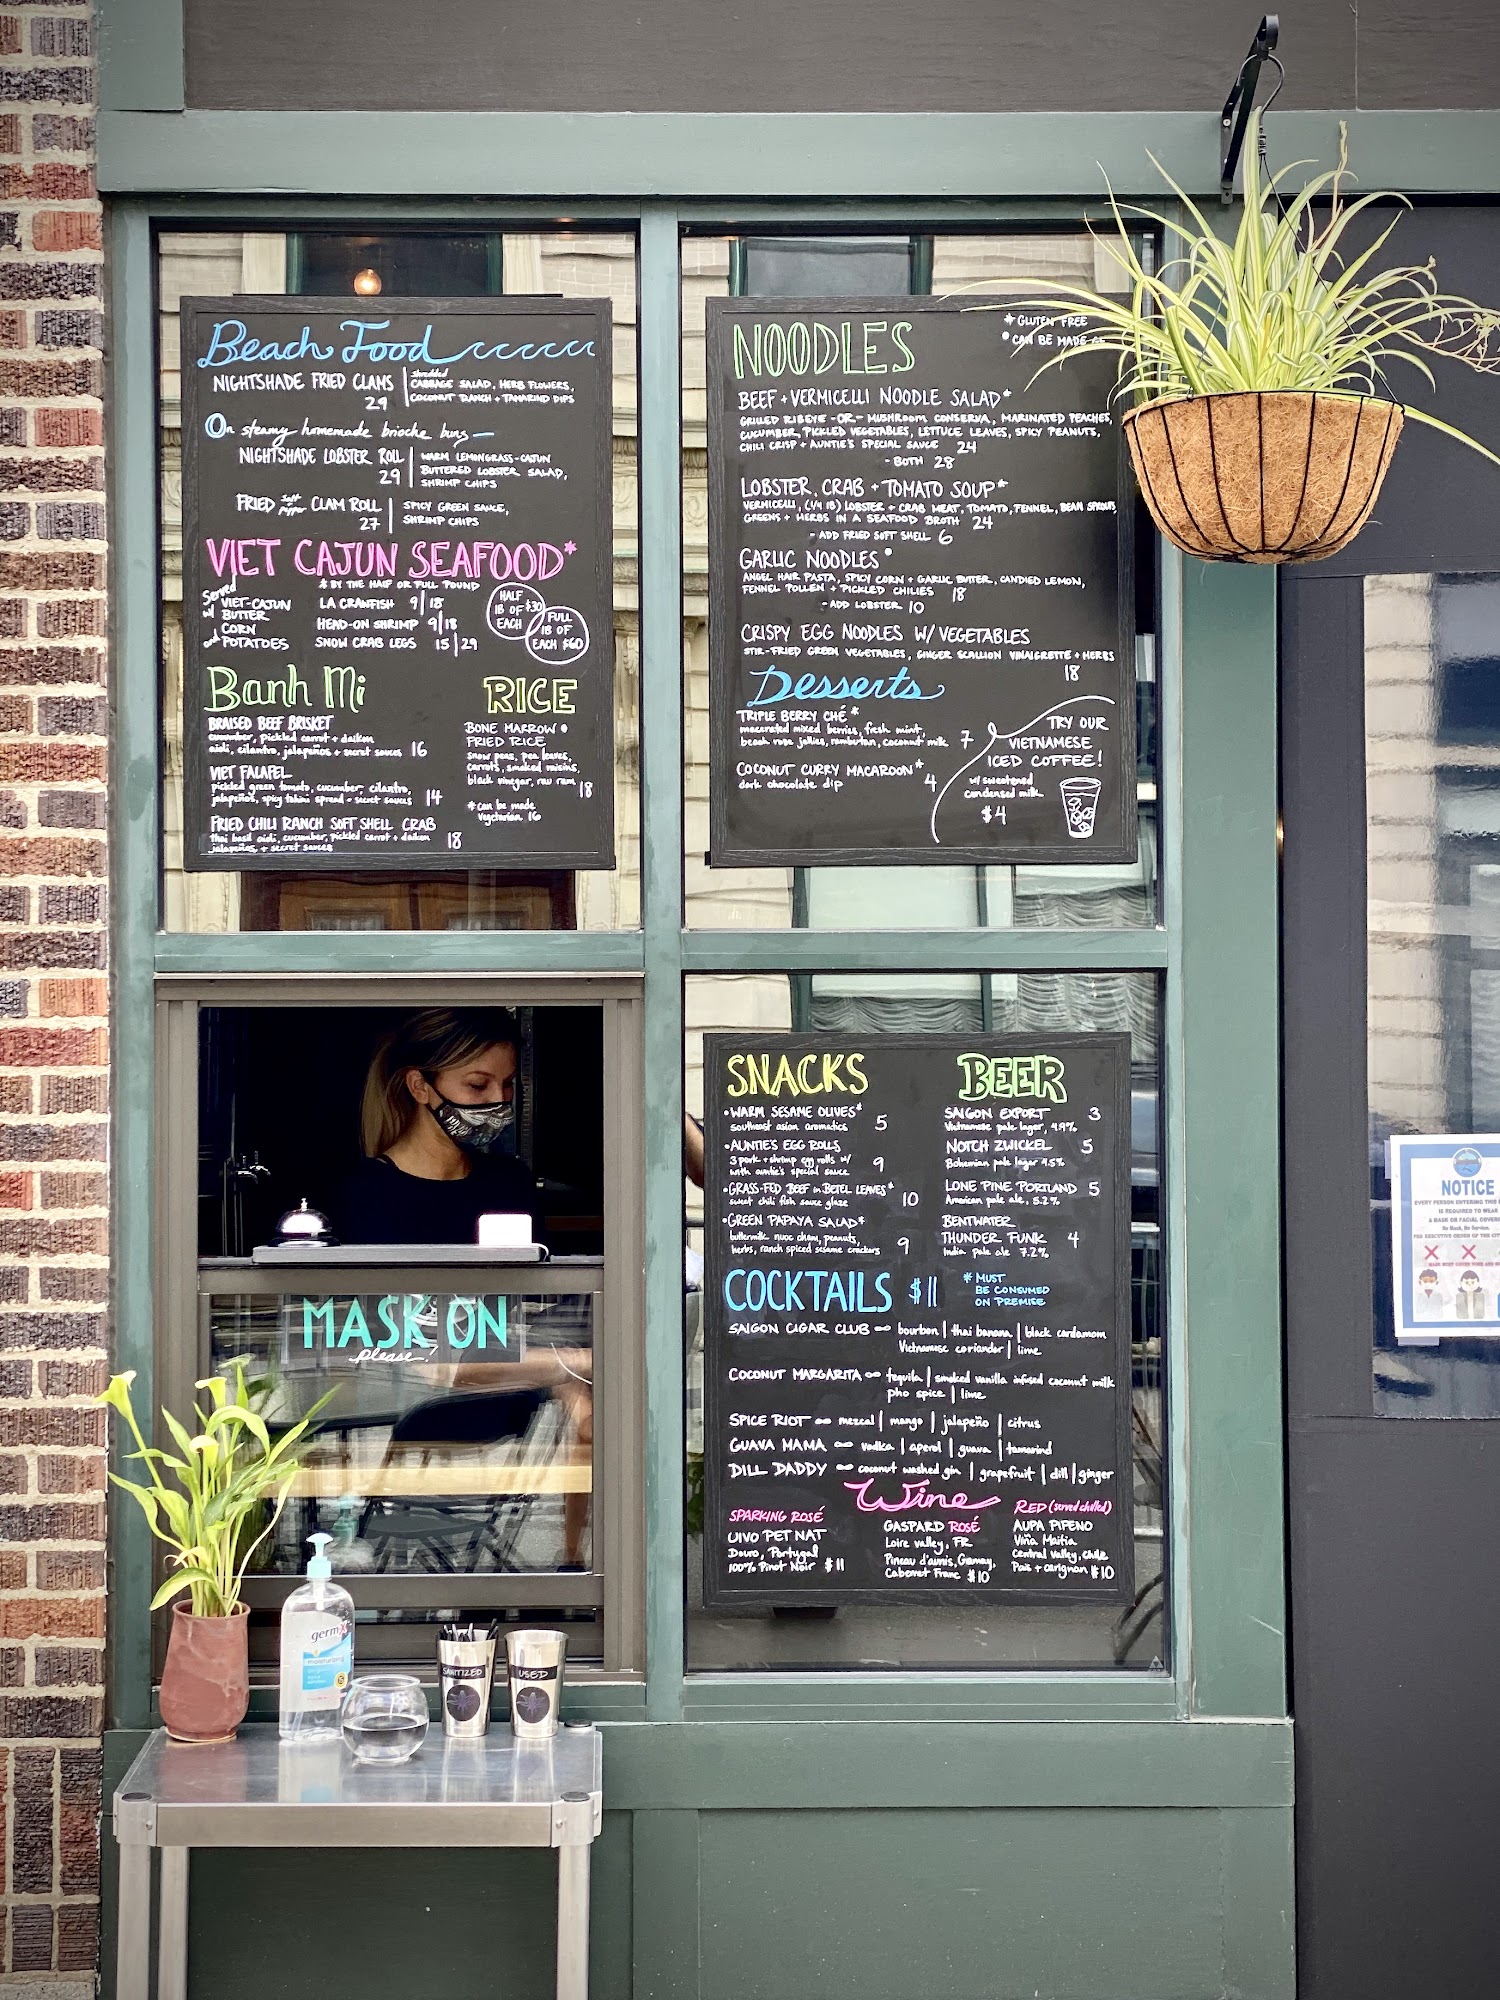 Beach Food
NIGHTSHADE FRIED CLAMS
29
shredded
CABBAGE SALAD, HERB FLOWERS,
COCONUT RANCH + TAMARIND DIPS
On steamy homemade brioche buns —
NIGHTSHADE LOBSTER ROLL
29
WARM LEMONGRASS-CAJUN
BUTTERED LOBSTER SALAD,
SHRIMP CHIPS
FRIED salt n pepper CLAM ROLL
27
SPICY GREEN SAUCE,
SHRIMP CHIPS
VIET CAJUN SEAFOOD*
* BY THE HALF OR FULL POUND
Served
w/ VIET-CAJUN
BUTTER
CORN
and POTATOES
LA CRAWFISH 9|18
HEAD-ON SHRIMP 9|18
SNOW CRAB LEGS 15|29
HALF
lB OF $30
EACH
FULL
lB OF
EACH $60
Banh Mi
BRAISED BEEF BRISKET
cucumber, pickled carrot + daikon
aioli, cilantro, jalapeños + secret sauces 16
VIET FALAFEL
pickled green tomato, cucumber, cilantro,
jalapeños, spicy tahini spread - secret sauces 14
FRIED CHILI RANCH SOFT SHELL CRAB
thai basil aioli, cucumber, pickled carrot + daikon
jalapeños, + secret sauces 18
RICE
BONE MARROW •
FRIED RICE
snow peas, pea leaves,
carrots, smoked raisins,
black vinegar, raw ram
18
*can be made
vegetarian 16
NOODLES
* GLUTEN FREE
• CAN BE MADE
BEEF + VERMICELLI NOODLE SALAD*
GRILLED RIBEYE -OR- MUSHROOM CONSERVA, MARINATED PEACHES,
CUCUMBER, PICKLED VEGETABLES, LETTUCE LEAVES, SPICY PEANUTS,
CHILI CRISP + AUNTIE'S SPECIAL SAUCE 24
- BOTH 28
LOBSTER, CRAB + TOMATO SOUP*
VERMICELLI, (1/4 lB) LOBSTER + CRAB MEAT, TOMATO, FENNEL, BEAN SPROUTS,
GREENS + HERBS IN A SEAFOOD BROTH 24
- ADD FRIED SOFT SHELL 6
GARLIC NOODLES •
ANGEL HAIR PASTA, SPICY CORN + GARLIC BUTTER, CANDIED LEMON,
FENNEL POLLEN + PICKLED CHILIES 18
- ADD LOBSTER 10
CRISPY EGG NOODLES W/ VEGETABLES
STIR-FRIED GREEN VEGETABLES, GINGER SCALLION VINAIGRETTE + HERBS
18
Desserts
TRIPLE BERRY CHÉ *
macerated mixed berries, fresh mint,
beach rose jellies, rambutan, coconut milk 7
COCONUT CURRY MACAROON*
dark chocolate dip 4
TRY OUR
VIETNAMESE
ICED COFFEE!
w/ sweetened
condensed milk
$4
SNACKS
•WARM SESAME OLIVES*
southeast asian aromatics 5
•AUNTIE'S EGG ROLLS
3 pork + shrimp egg rolls w/
with auntie's special sauce 9
•GRASS-FED BEEF in BETEL LEAVES*
sweet chili fish sauce glaze 10
•GREEN PAPAYA SALAD*
buttermilk nuoc cham, peanuts,
herbs, ranch spiced sesame crackers 9
BEER
SAIGON EXPORT 3
Vietnamese pale lager, 4.9%
NOTCH ZWICKEL 5
Bohemian pale lager 4.5%
LONE PINE PORTLAND 5
American pale ale, 5.2%
BENTWATER
THUNDER FUNK 4
India pale ale 7.2%
COCKTAILS $11
* MUST
BE CONSUMED
ON PREMISE
SAIGON CIGAR CLUB bourbon | thai banana | black cardamom
Vietnamese coriander | lime
COCONUT MARGARITA tequila | smoked vanilla infused coconut milk
pho spice | lime
SPICE RIOT mezcal | mango | jalapeño | citrus
GUAVA MAMA vodka | aperol | guava | tamarind
DILL DADDY coconut washed gin | grapefruit | dill | ginger
Wine
SPARKING ROSÉ
UIVO PET NAT
Douro, Portugal
100% Pinot Noir $11
GASPARD ROSÉ
Loire valley, FR
Pineau d'aunis, Gamay,
Cabernet Franc $10
RED (served chilled)
AUPA PIPENO
Viña Maitia
Central Valley, Chile
Pais + carignan $10
MASK ON
please!
germX
moisturizing
SANITIZED
USED
NOTICE
EVERY PERSON ENTERING THIS
IS REQUIRED TO WEAR
A MASK OR FACIAL COVERING
No Mask, No Service.